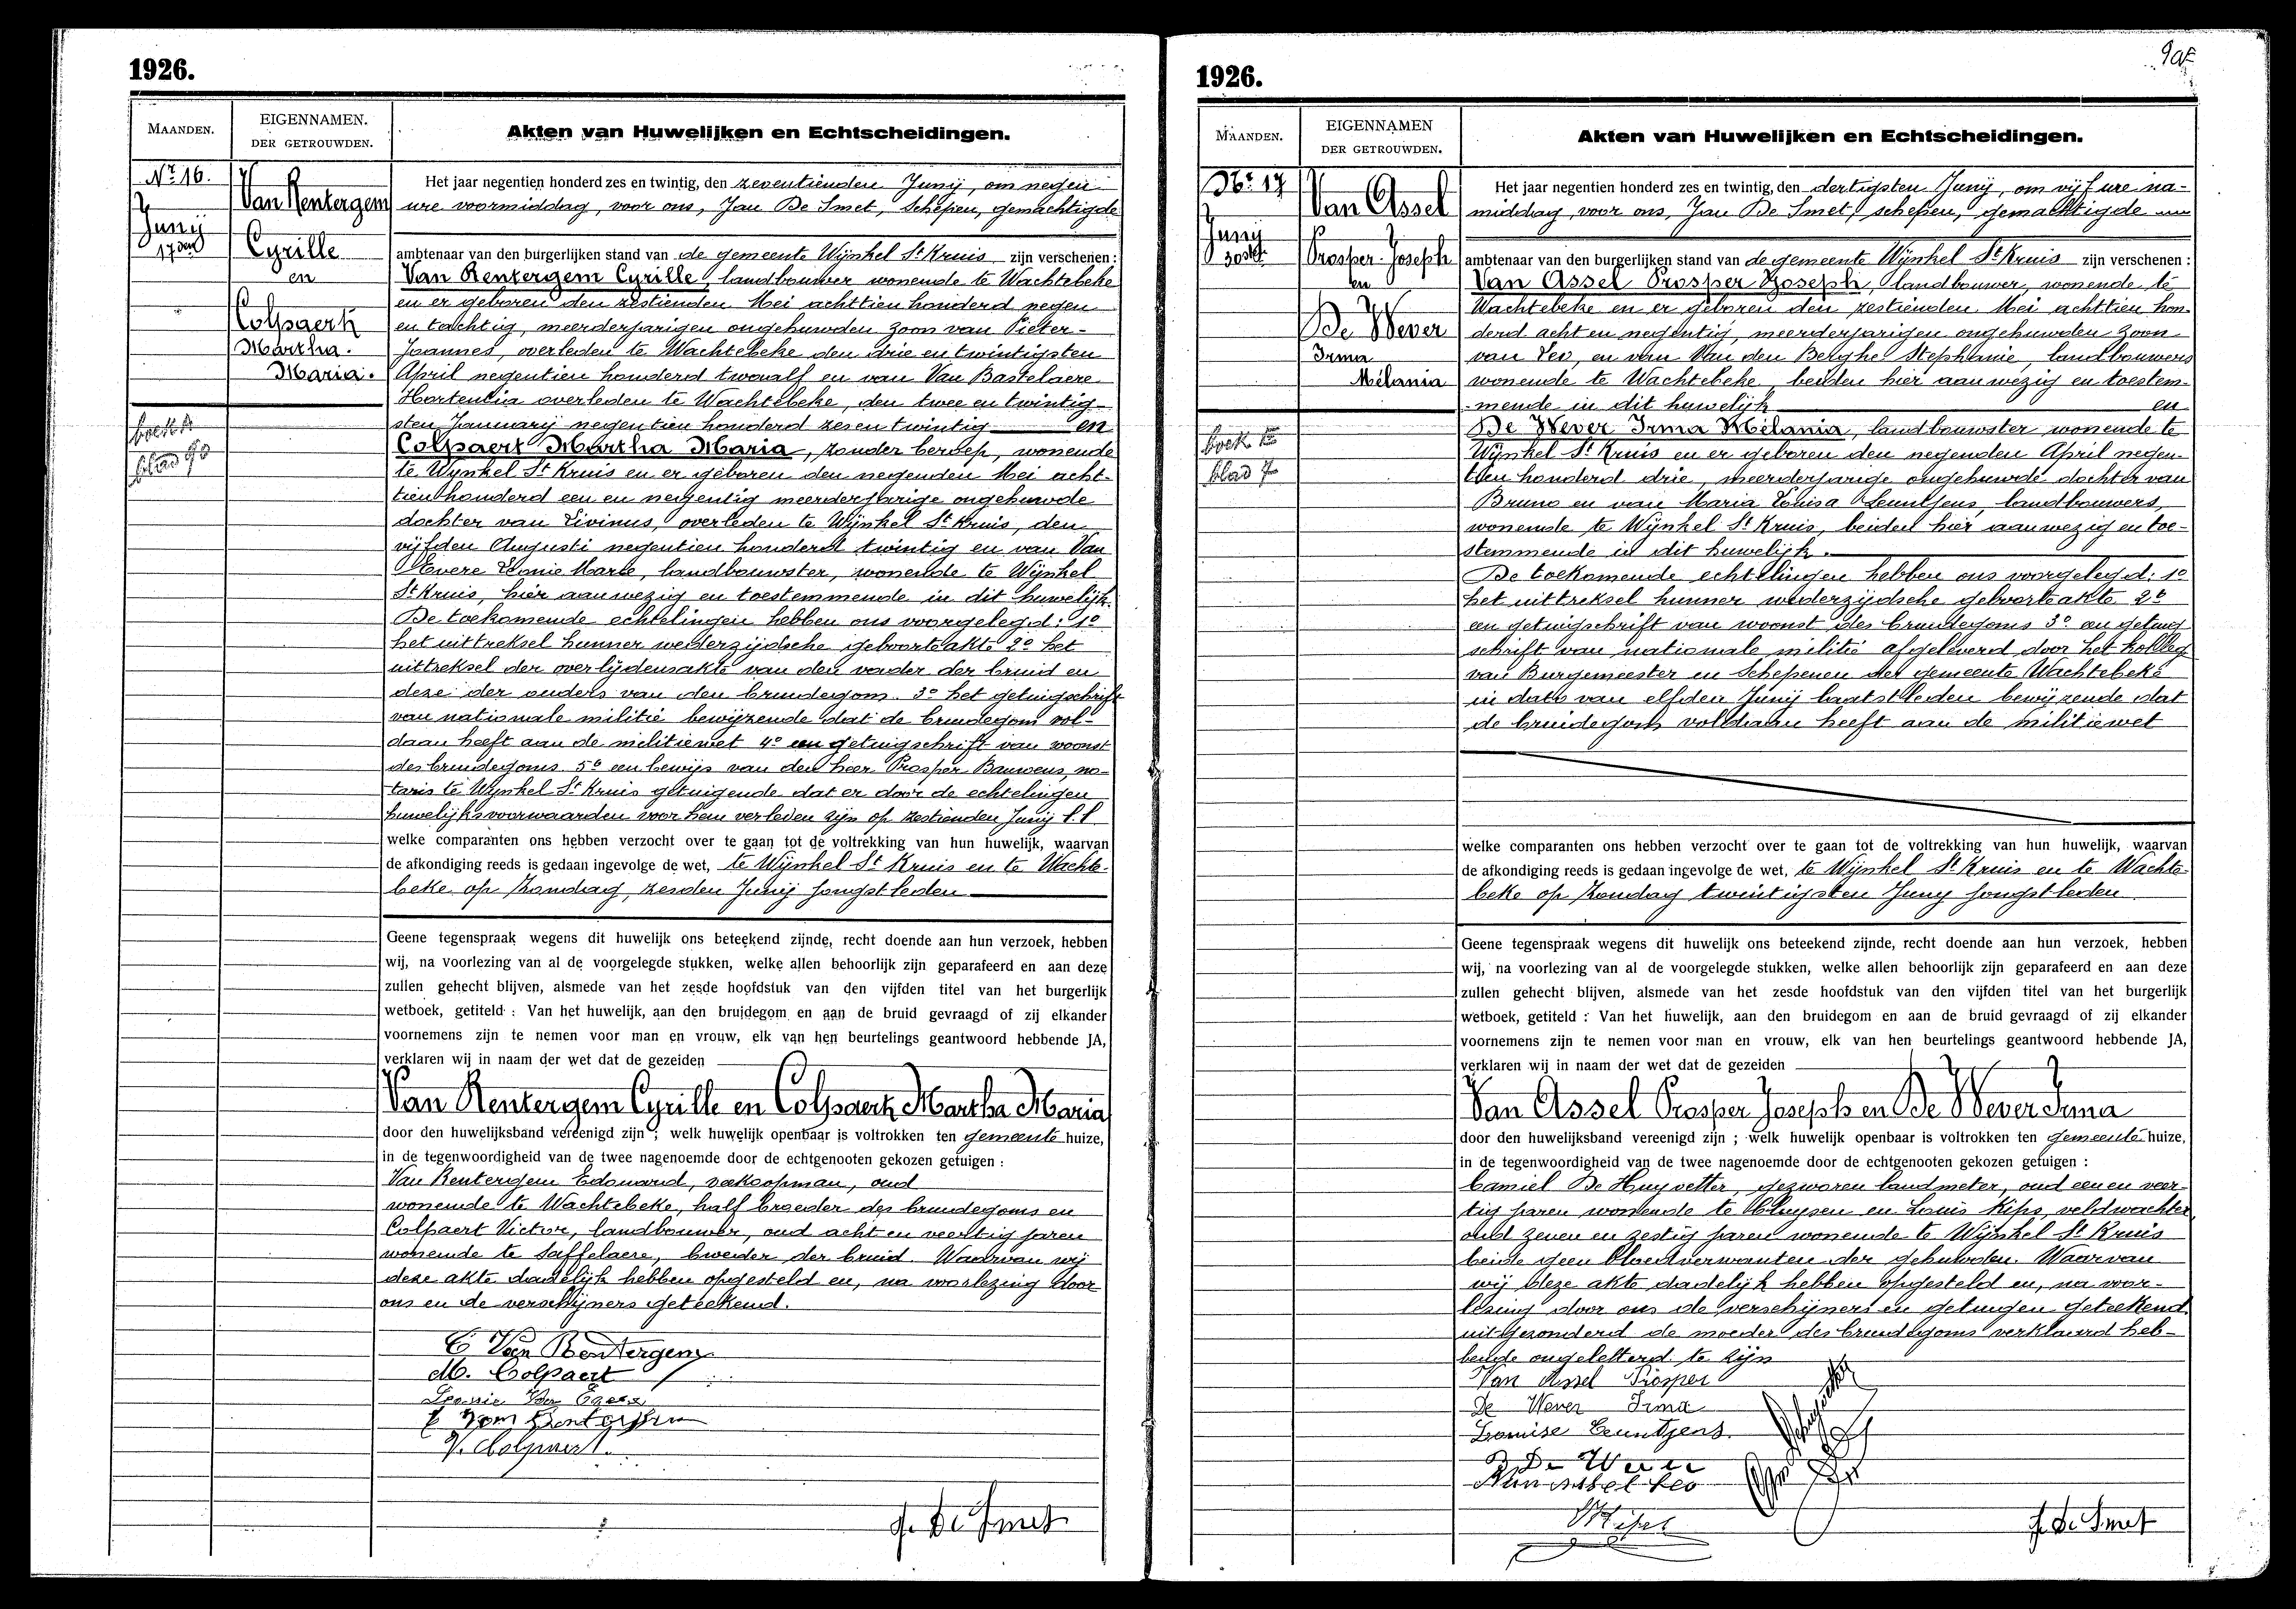 1926.
MAANDEN.
EIGENNAMEN.
DER GETROUWDEN.
Akten van Huwelijken en Echtscheidingen.
Nr. 16.
Junij
17den
Van Rentergem
Cyrille
en
Colpaert
Martha.
Maria.
boek A
blad 93
Het jaar negentien honderd zes en twintig, den zeventienden Junij, om negen
ure voormiddag, voor ons, Jan De Smet, schepen, gemachtigde
ambtenaar van den burgerlijken stand van de gemeente Wijnkel St Kruis zijn verschenen :
Van Rentergem Cyrille, landbouwer wonende te Wachtebeke
en er geboren den zestienden Mei achttien honderd negen
en tachtig, meerderjarigen ongehuwden zoon van Pieter-
Joannes, overleden te Wachtebeke den drie en twintigsten
April negentien honderd twaalf en van Van Bastelaere
Hortentia overleden te Wachtebeke, den twee en twintig-
sten January negentien honderd zes en twintig en
Colpaert Martha Maria, zonder beroep, wonende
te Wynkel St Kruis en er geboren den negenden Mei acht-
tien honderd een en negentig meerderjarige ongehuwde
dochter van Livinus, overleden te Wijnkel St Kruis, den
vijfden Augusti negentien honderd twintig en van Van
Leonie Marie, landbouwster, wonende te Wijnkel
St Kruis, hier aanwezig en toestemmende in dit huwelijk.
De toekomende echtelingen hebben ons voorgelegd: 1o
het uittreksel hunner wederzijdsche geboorteakte 2o het
uittreksel der overlijdensakte van den vader der bruid en
deze der ouders van den bruidegom. 3o het getuigschrift
van nationale militie bewijzende dat de bruidegom vol-
daan heeft aan de militiewet 4o een getuigschrift van woonst
des bruidegoms. 5o een bewijs van den heer Prosper Bauwens, no-
taris te Wynkel St Kruis getuigende dat er door de echtelingen
huwelijksvoorwaarden voor hem verleden zijn op zestienden Junij l.l.
welke comparanten ons hebben verzocht over te gaan tot de voltrekking van hun huwelijk, waarvan
de afkondiging reeds is gedaan ingevolge de wet, te Wijnkel St Kruis en te Wachte-
beke op Zondag, zesden Junij jongstleden
Geene tegenspraak wegens dit huwelijk ons beteekend zijnde, recht doende aan hun verzoek, hebben
wij, na voorlezing van al de voorgelegde stukken, welke allen behoorlijk zijn geparafeerd en aan deze
zullen gehecht blijven, alsmede van het zesde hoofdstuk van den vijfden titel van het burgerlijk
wetboek, getiteld : Van het huwelijk, aan den bruidegom en aan de bruid gevraagd of zij elkander
voornemens zijn te nemen voor man en vrouw, elk van hen beurtelings geantwoord hebbende JA,
verklaren wij in naam der wet dat de gezeiden
Van Rentergem Cyrille en Colpaert Martha Maria
door den huwelijksband vereenigd zijn ; welk huwelijk openbaar is voltrokken ten gemeente huize,
in de tegenwoordigheid van de twee nagenoemde door de echtgenooten gekozen getuigen :
Van Rentergem Edouard, veekoopman, oud
wonende te Wachtebeke, half broeder des bruidegoms en
Colpaert Victor, landbouwer, oud acht en veertig jaren
wonende te Saffelaere, broeder der bruid. Waarvan wij
deze akte dadelijk hebben opgesteld en, na voorlezing door
ons en de verschijners geteekend.
C Van Rentergem
M. Colpaert
Leonie Van
E Van Rentergem
V. Colpaert.
J. De Smet
1926.
MAANDEN.
EIGENNAMEN
DER GETROUWDEN.
Akten van Huwelijken en Echtscheidingen.
Nr. 17
Junij
30ste
Van Assel
Prosper-Joseph
en
De Wever
Irma
Mélania
boek E
blad 7
Het jaar negentien honderd zes en twintig, den dertigsten Junij, om vijf ure na-
middag, voor ons, Jan De Smet, schepen, gemachtigde
ambtenaar van den burgerlijken stand van de gemeente Wijnkel St Kruis zijn verschenen :
Van Assel Prosper Joseph, landbouwer, wonende te
Wachtebeke en er geboren den zestienden Mei achttien hon-
derd acht en negentig, meerderjarigen ongehuwden zoon
van Leo, en van Van den Berghe Stephanie, landbouwers
wonende te Wachtebeke, beiden hier aanwezig en toestem-
-mende in dit huwelijk en
De Wever Irma Mélania, landbouwster wonende te
Wijnkel St Kruis en er geboren den negenden April negen-
tien honderd drie, meerderjarige ongehuwde dochter van
Bruno en van Maria Louisa Ceuntjens, landbouwers,
wonende te Wijnkel St Kruis, beiden hier aanwezig en toe-
stemmende in dit huwelijk.
De toekomende echtelingen hebben ons voorgelegd: 1o
het uittreksel hunner wederzijdsche geboorteakte 2o
een getuigschrift van woonst des bruidegoms 3o een getuig
schrift van nationale militie afgeleverd door het kolleg
van Burgemeester en Schepenen der gemeente Wachtebeke
in dato van elfden Junij laatstleden bewijzende dat
de bruidegom voldaan heeft aan de militiewet
welke comparanten ons hebben verzocht over te gaan tot de voltrekking van hun huwelijk, waarvan
de afkondiging reeds is gedaan ingevolge de wet, te Wijnkel St Kruis en te Wachte-
beke op Zondag twintigsten Juny jongstleden
Geene tegenspraak wegens dit huwelijk ons beteekend zijnde, recht doende aan hun verzoek, hebben
wij, na voorlezing van al de voorgelegde stukken, welke allen behoorlijk zijn geparafeerd en aan deze
zullen gehecht blijven, alsmede van het zesde hoofdstuk van den vijfden titel van het burgerlijk
wetboek, getiteld : Van het huwelijk, aan den bruidegom en aan de bruid gevraagd of zij elkander
voornemens zijn te nemen voor man en vrouw, elk van hen beurtelings geantwoord hebbende JA,
verklaren wij in naam der wet dat de gezeiden
Van Assel Prosper Joseph en De Wever Irma
door den huwelijksband vereenigd zijn ; welk huwelijk openbaar is voltrokken ten gemeente huize,
in de tegenwoordigheid van de twee nagenoemde door de echtgenooten gekozen getuigen :
Camiel De Huyvetter, gezworen landmeter, oud een en veer-
tig jaren wonende te Cluysen en Louis Kips, veldwachter,
oud zeven en zestig jaren wonende te Wijnkel St Kruis
beide geen bloedverwanten der gehuwden. Waarvan
wij deze akte dadelijk hebben opgesteld en, na voor-
lezing door ons de verschijners en getuigen geteekend
uitgezonderd de moeder des bruidegoms verklaard heb-
bende ongeletterd te zijn
Van Assel Prosper
De Wever Irma
Louise Ceuntjens.
B De Wever
Van Assel Leo
Kips
J. De Smet